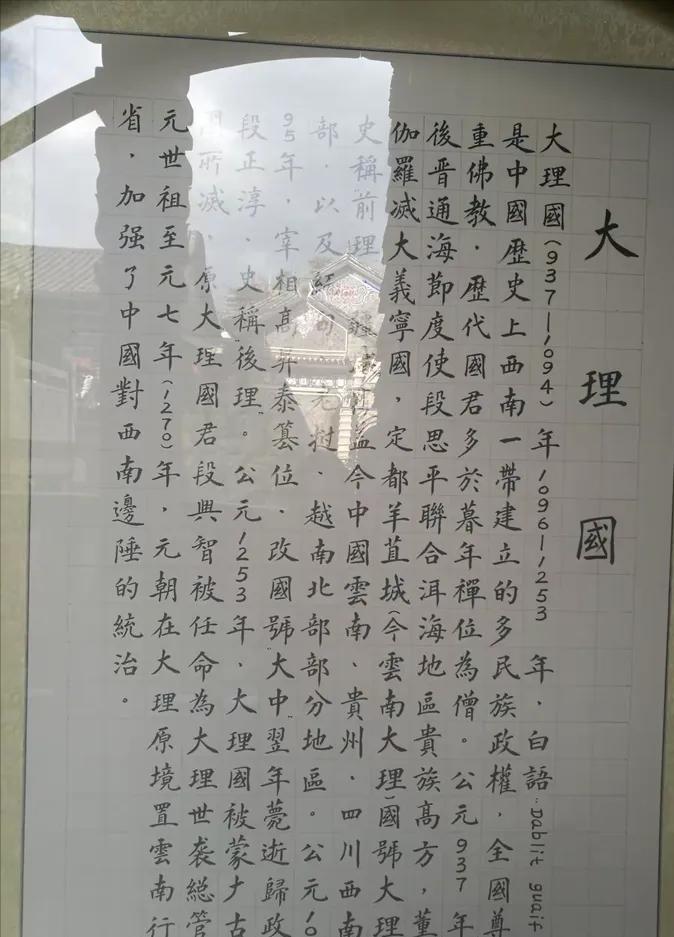 大理國
大理國(937—1094)年1096—1253年，白語：Dablit guaif
是中國歷史上西南一帶建立的多民族政權，全國尊
重佛教，歷代國君多於暮年禪位為僧。公元937年
後晋通海節度使段思平聯合洱海地區貴族高方，董
伽羅滅大義寧國，定都羊苴城(今雲南大理)國號大理
史稱前理 疆 今中國雲南、貴州、四川西南
部，以及 老挝、越南北部部分地區。公元10
95年，宰相高昇泰篡位，改國號"大中"翌年薨逝歸政
段正淳，史稱"後理"。公元1253年，大理國被蒙古
所滅，原大理國君段興智被任命為大理世袭總管
元世祖至元七年(1270)年，元朝在大理原境置雲南行
省，加强了中國對西南邊陲的統治。